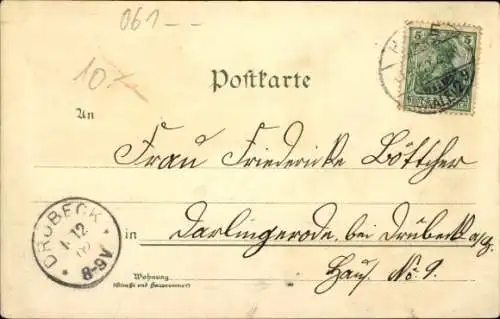 061 --
10 x
Postkarte
5 5
An
Frau Friedericke Böttcher
in Darlingerode, bei Drübeck a/H
Haus No. 9.
Wohnung
(Straße und Hausnummer)
DRÜBECK
1.12
8-9V